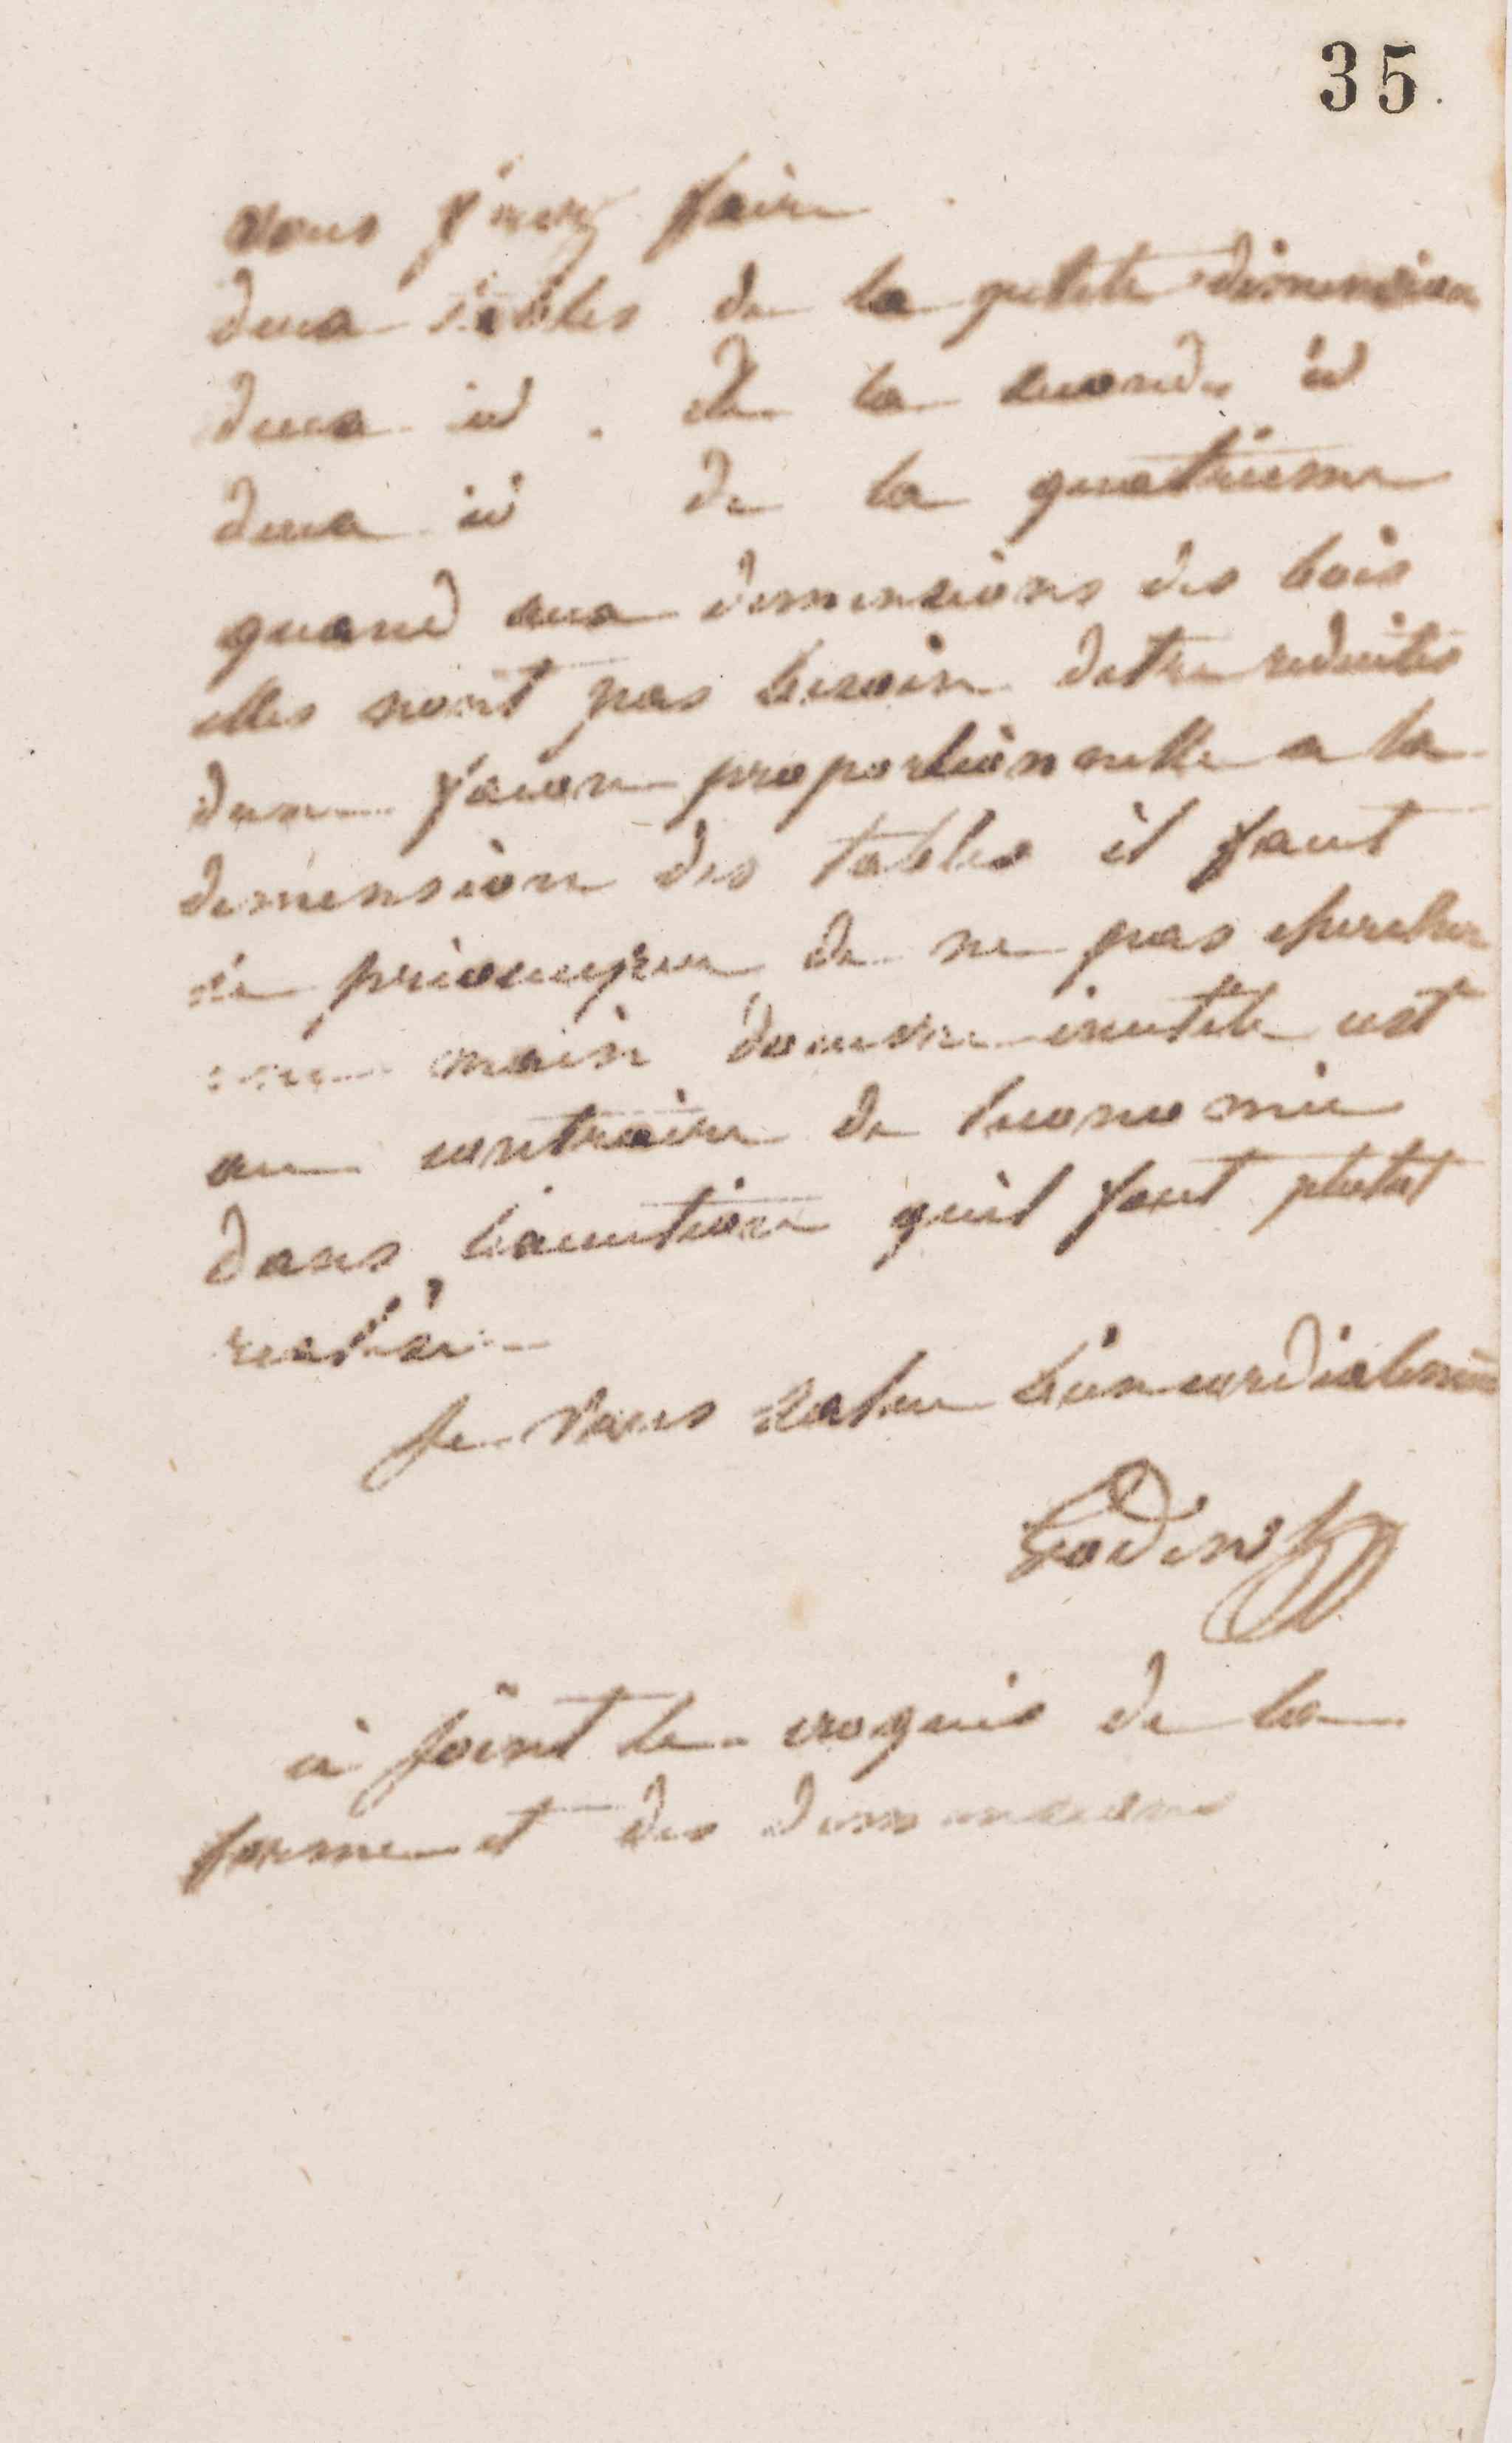 35
vous ferez faire
deux tables de la petite dimension
deux id. de la seconde id
deux id de la quatrieme
quand aux dimensions des bois
elles nont pas besoin detre reduites
dune facon proportionnelle a la
dimension des tables il faut
se préoccuper de ne pas chercher
une main dœuvre inutile cest
au contraire de leconomie
dans lexecution quil faut plutot
Je vous salue bien cordialement
Godin
ci joint le croquis de la
forme et des dimensions